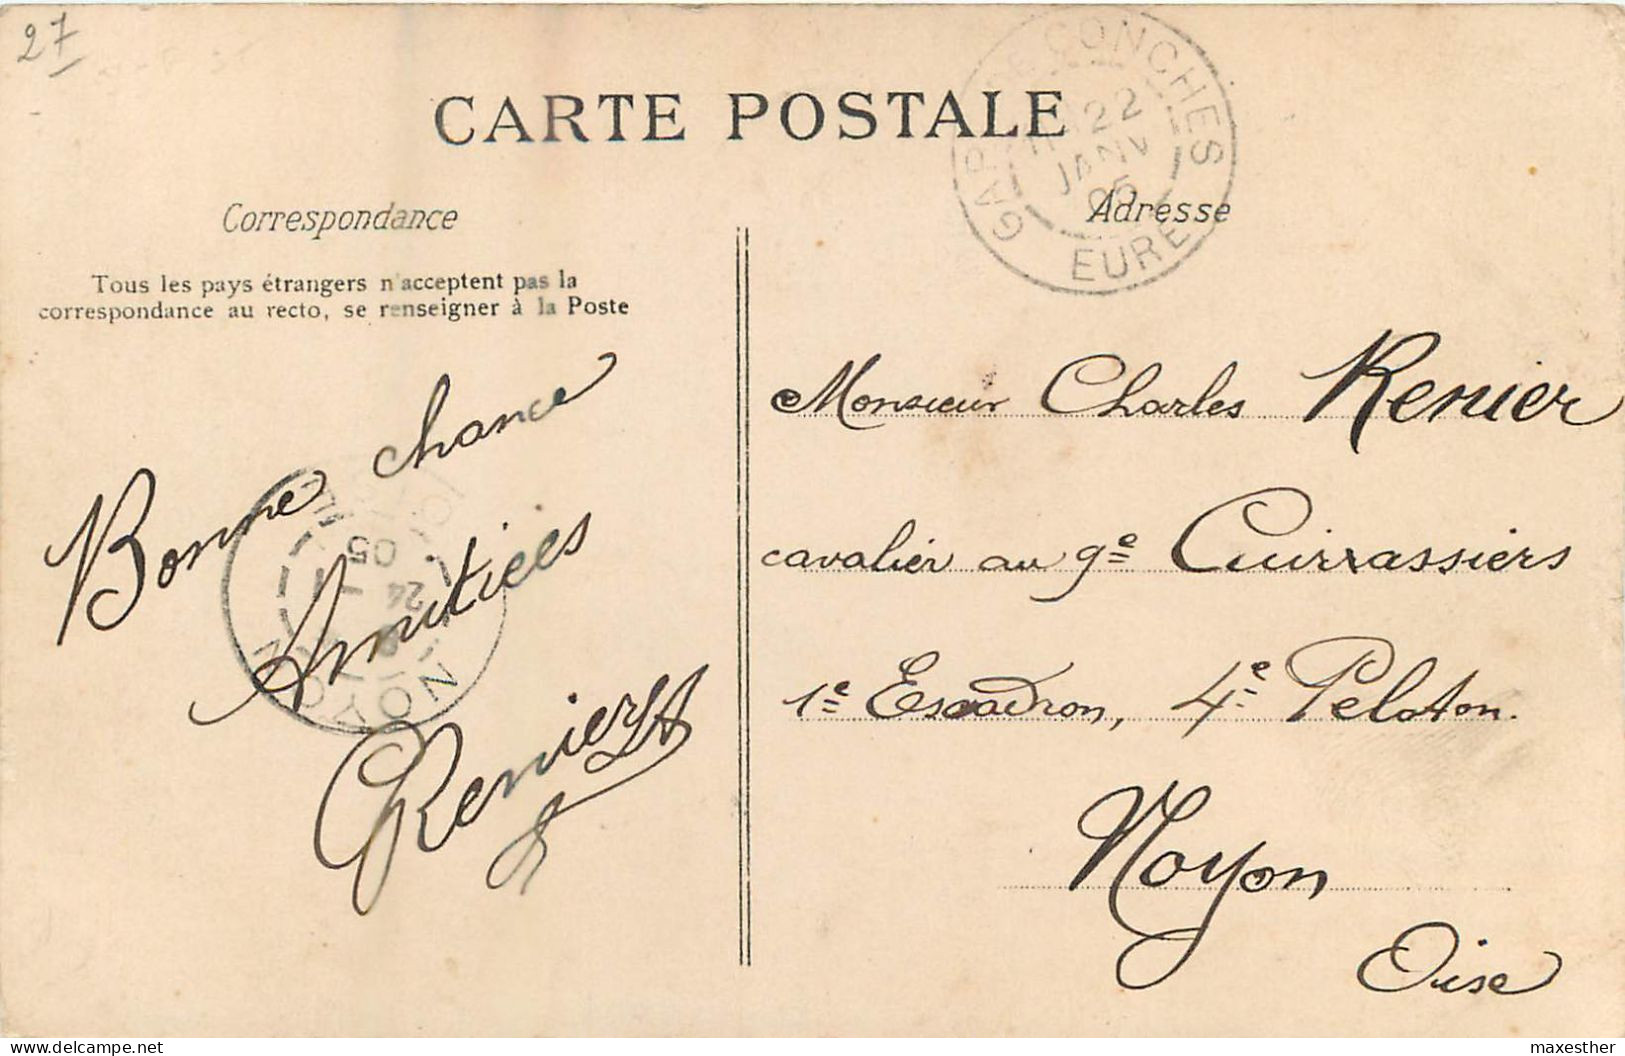 27
CARTE POSTALE
GARE DE CONCHES
22
JANV
05
EURE
Correspondance
Adresse
Tous les pays étrangers n'acceptent pas la
correspondance au recto, se renseigner à la Poste
Bonne chance
Amitiées
Renier
NOYON
24
1
05
OISE
Monsieur Charles Renier
cavalier au 9e Cuirrassiers
1e Escadron, 4e Peloton.
Noyon
Oise
delcampe.net
maxesther